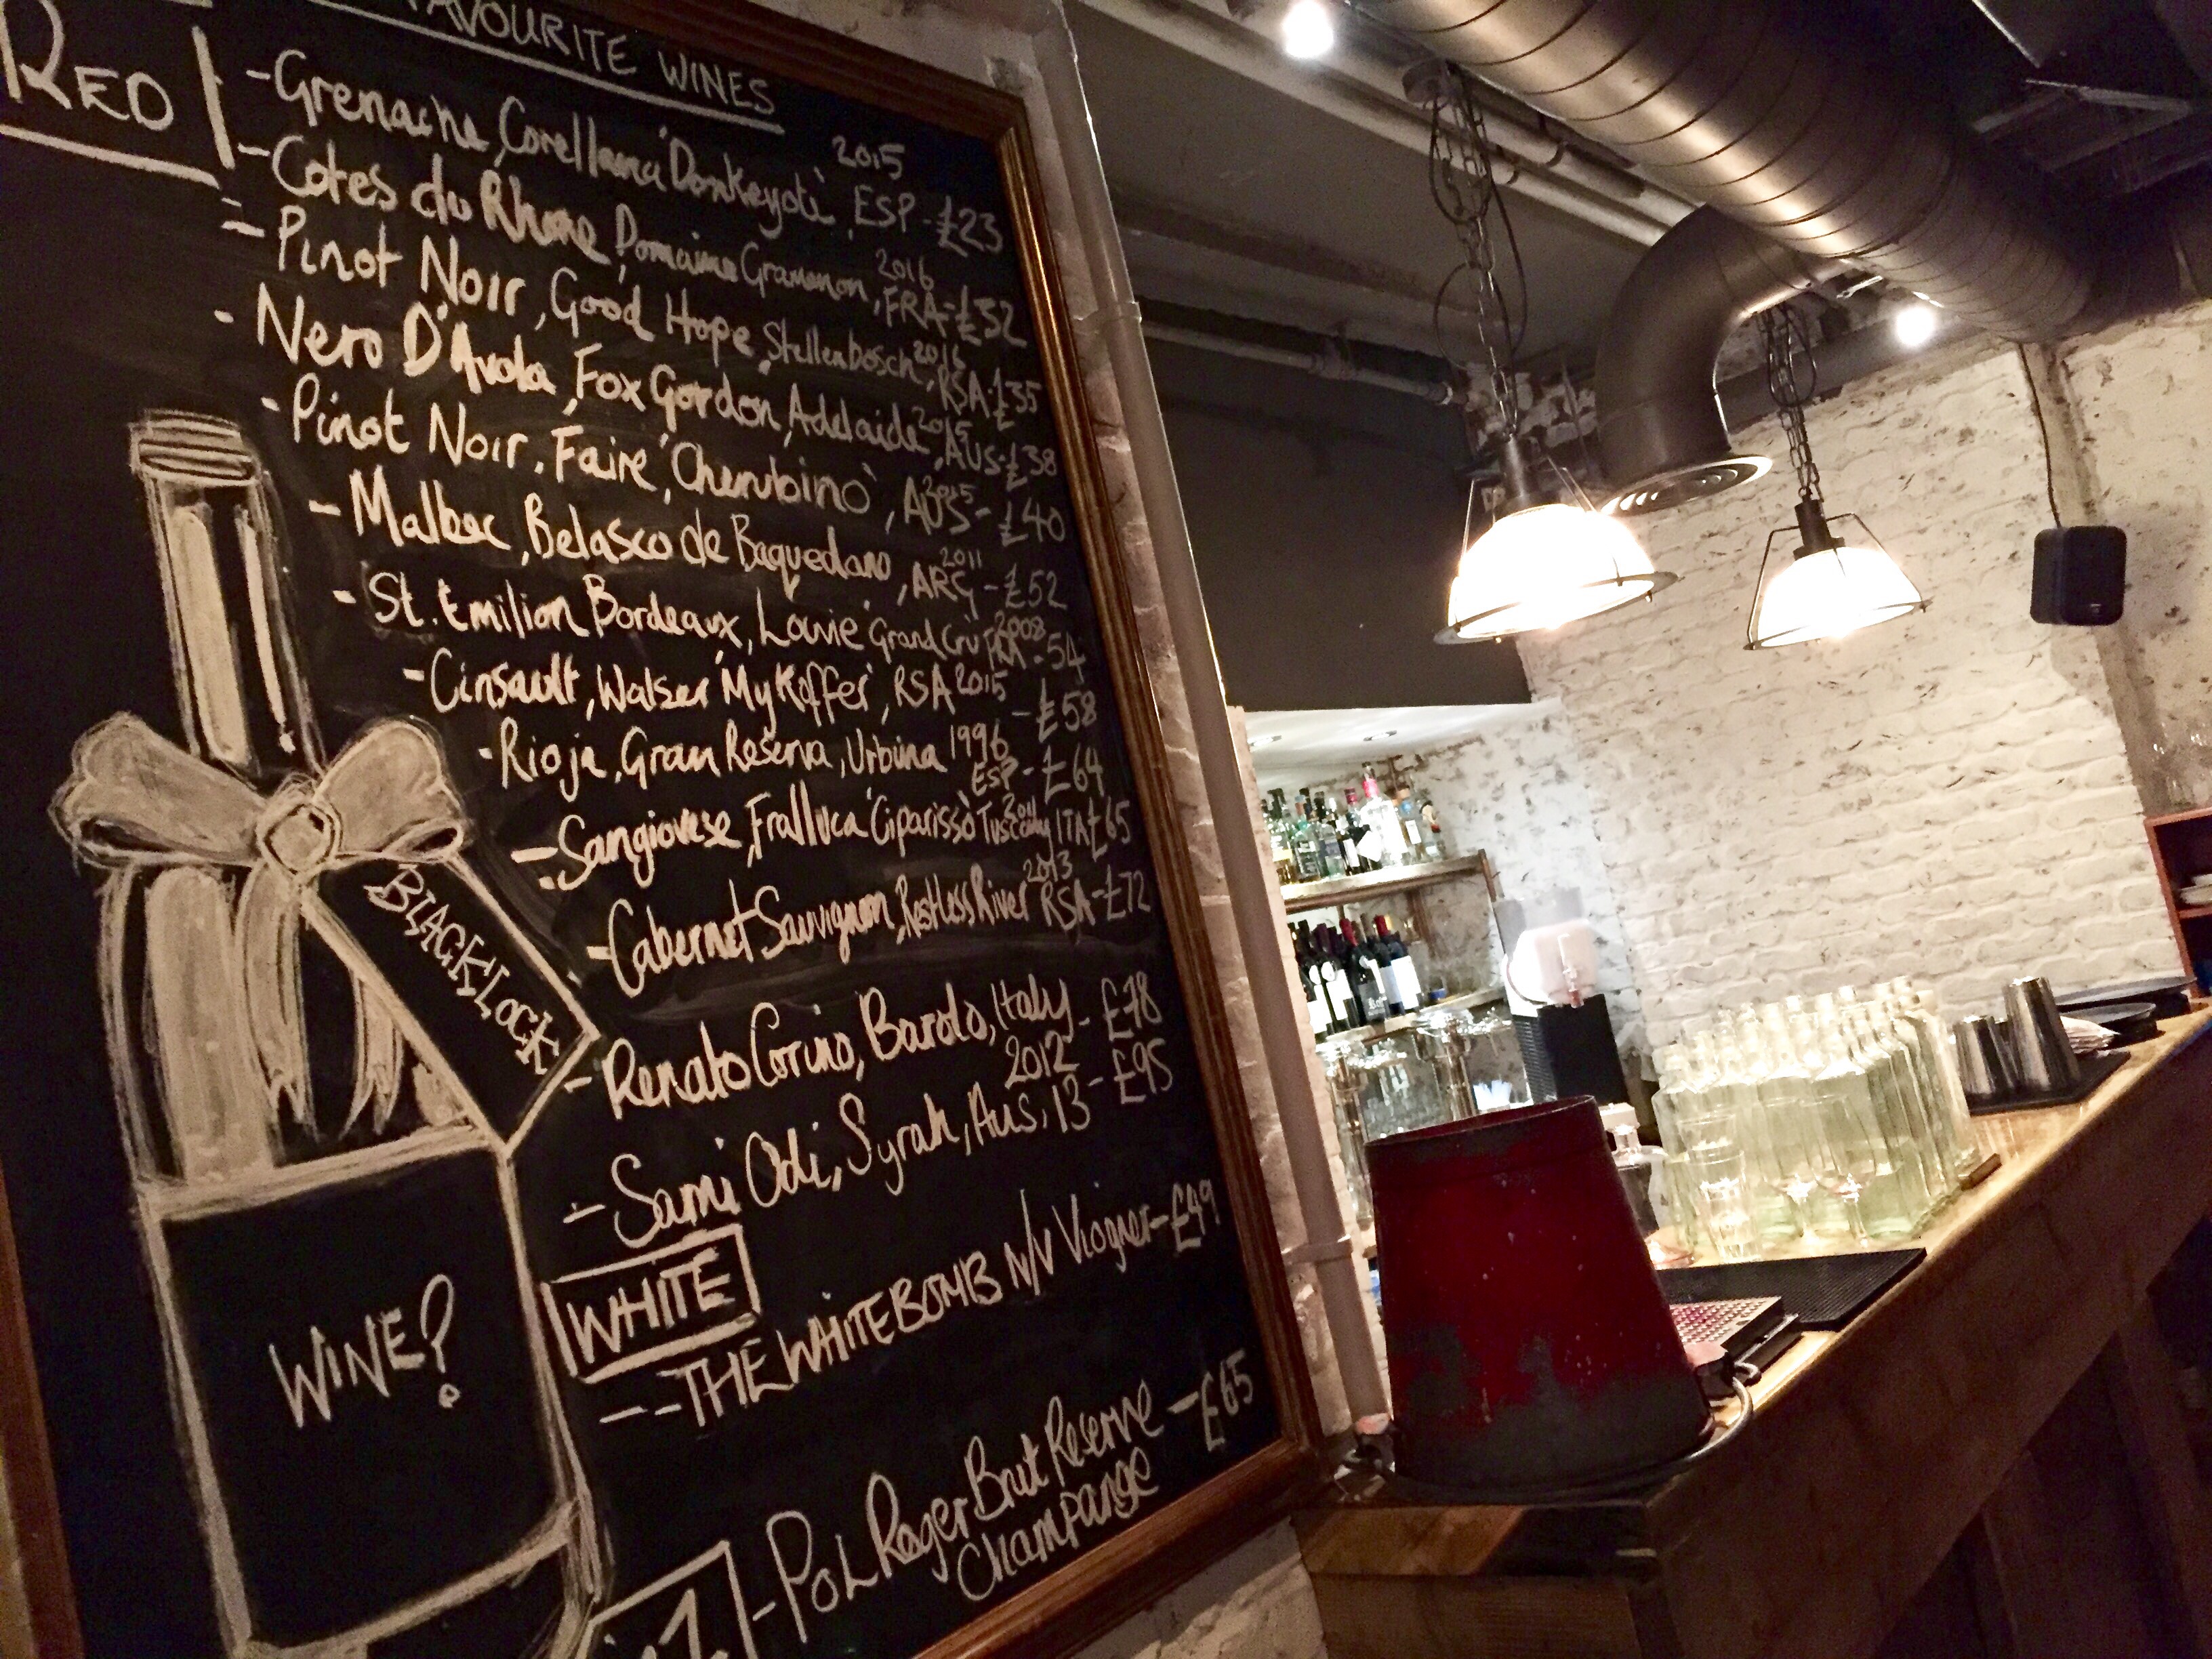 FAVOURITE WINES
RED
- Grenache, Corellana 'Donkeyoti', 2015 ESP - £23
- Cotes du Rhone, Domaine Gramenon, 2016 FRA - £32
- Pinot Noir, Good Hope, Stellenbosch, 2016 RSA - £35
- Nero D'Avola, Fox Gordon, Adelaide, 2015 AUS - £38
- Pinot Noir, Faire, 'Cherubino', AUS - £40
- Malbec, Belasco de Baquedano, 2011 ARG - £52
- St. Emilion Bordeaux, Louvie, 'Grand Cru' 2008 FRA - 54
- Cinsault, Walser 'My Koffer', RSA 2015 - £58
- Rioja, Gran Reserva, Urbina 1996 ESP - £64
- Sangiovese, Fralluca 'Ciparisso' Tuscany 2011 ITA £65
- Cabernet Sauvignon, Restless River 2013 RSA - £72
- Renato Corino, Barolo, Italy 2012 - £78
- Sami Odi, Syrah, Aus, 13 - £95
WHITE
-- THE WHITE BOMB N/V Viogner - £49
- POL Roger Brut Reserve Champange - £65
BLACKLOCK
WINE?